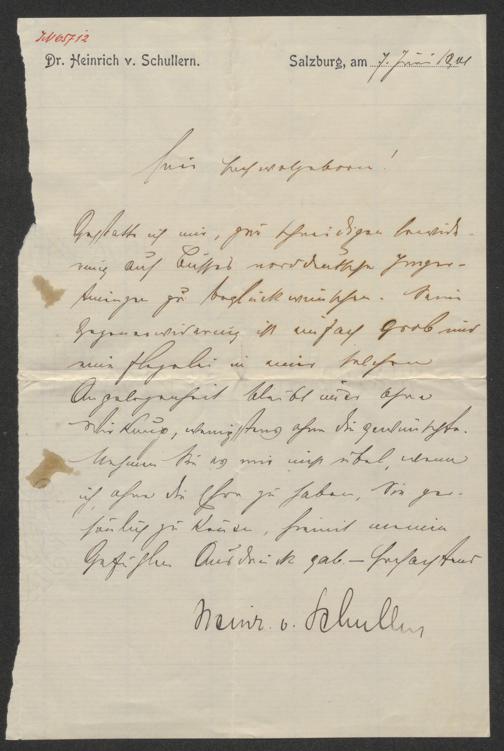 Dr. Heinrich v. Schullern.
Salzburg, am 7. Juni 1901
Euer Hochwolgeboren!
Gestatte ich mir, zur schneidigen Erwide-
rung auf Busses norddeutsche
zu beglückwünschen. Seine
Gegenerwiderung ist einfach grob und
eine Flegelei in einer solchen
Angelegenheit bleibt immer ohne
Wirkung, wenigstens ohne die gewünschte.
Nehmen Sie es mir nicht übel, wenn
ich, ohne die Ehre zu haben, Sie per-
sönlich zu kennen, hiemit meinen
Gefühlen Ausdruck gab. – Hochachtend
Heinr. v. Schullern